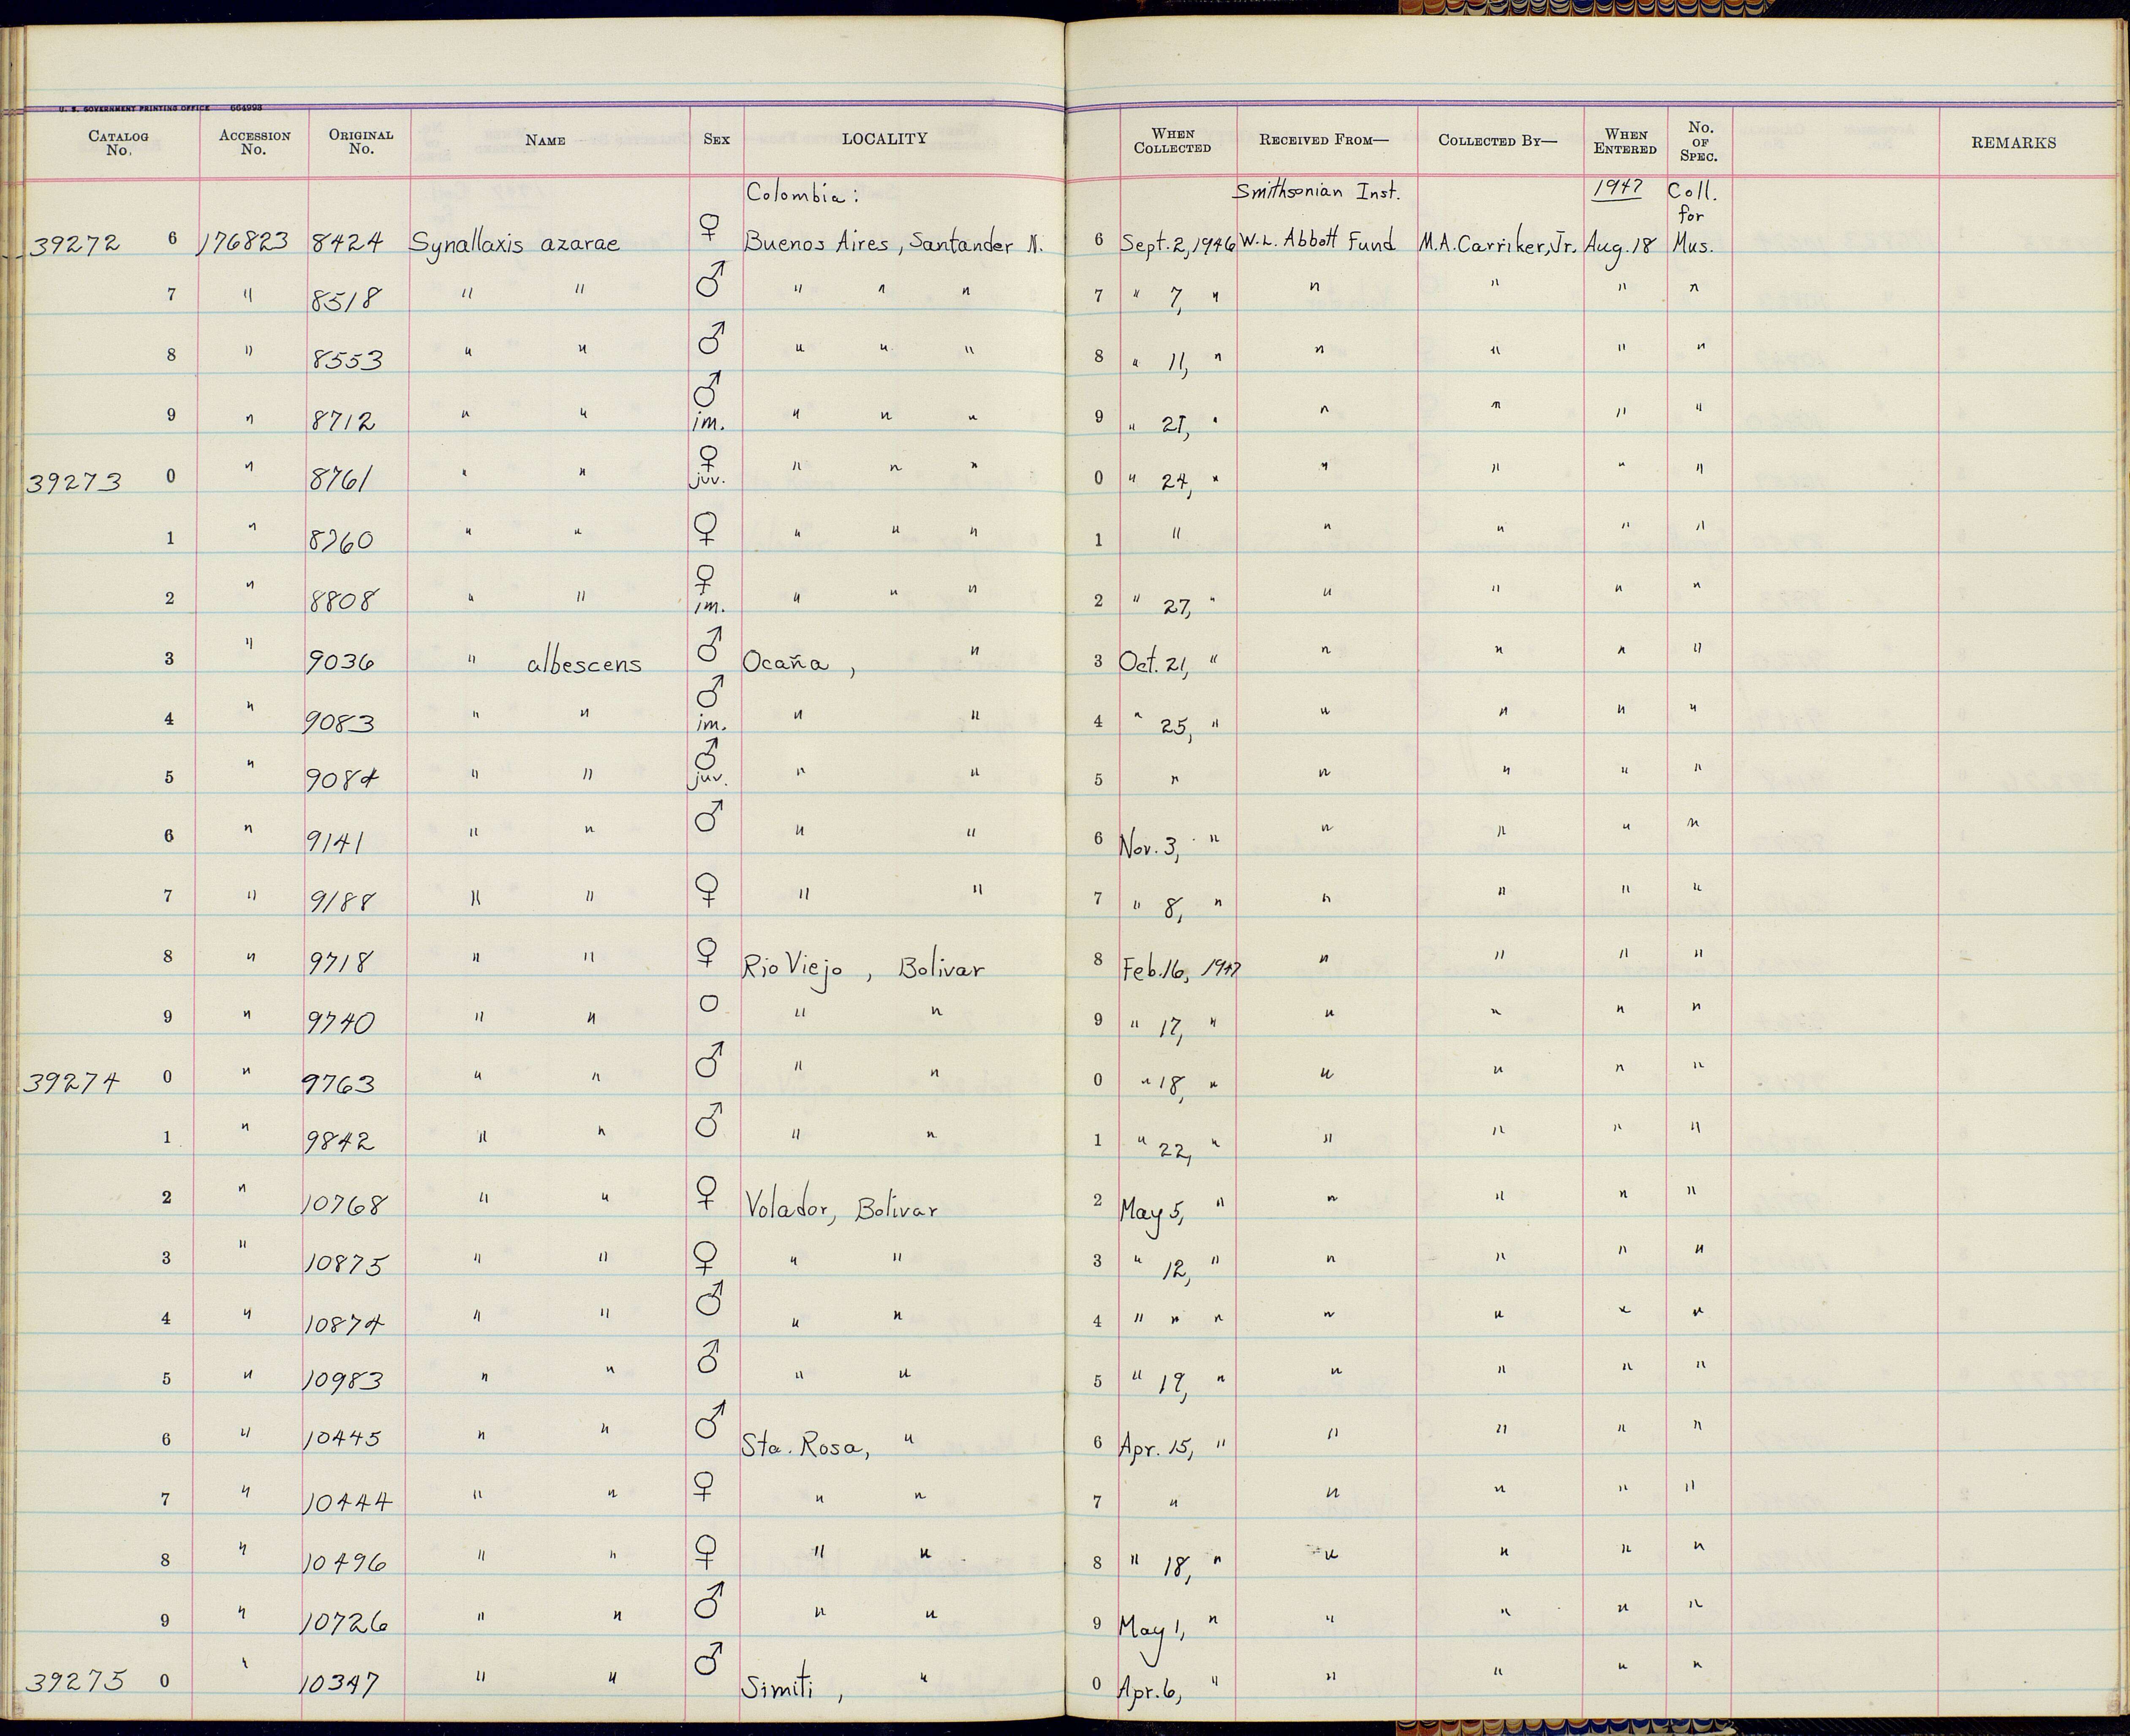 U. S. GOVERNMENT PRINTING OFFICE 664993
CATALOG No. ACCESSION No. ORIGINAL No. NAME SEX LOCALITY WHEN COLLECTED RECEIVED FROM— COLLECTED BY— WHEN ENTERED No. OF SPEC. REMARKS
Colombia: Smithsonian Inst. 1947 Coll. for
39272 6 176823 8424 Synallaxis azarae ♀ Buenos Aires, Santander N. 6 Sept. 2, 1946 W. L. Abbott Fund M.A. Carriker, Jr. Aug. 18 Mus.
7 " 8518 " " ♂ " " " 7 " 7, " " " " "
8 " 8553 " " ♂ " " " 8 " 11, " " " " "
9 " 8712 " " ♂ im. " " " 9 " 21, " " " " "
39273 0 " 8761 " " ♀ juv. " " " 0 " 24, " " " " "
1 " 8760 " " ♀ " " " 1 " " " " "
2 " 8808 " " ♀ im. " " " 2 " 27, " " " " "
3 " 9036 " albescens ♂ Ocaña, " 3 Oct. 21, " " " " "
4 " 9083 " " ♂ im. " " 4 " 25, " " " " "
5 " 9084 " " ♂ juv. " " 5 " " " " "
6 " 9141 " " ♂ " " 6 Nov. 3, " " " " "
7 " 9188 " " ♀ " " 7 " 8, " " " " "
8 " 9718 " " ♀ Rio Viejo, Bolivar 8 Feb. 16, 1947 " " " "
9 " 9740 " " O " " 9 " 17, " " " " "
39274 0 " 9763 " " ♂ " " 0 " 18, " " " " "
1 " 9842 " " ♂ " " 1 " 22, " " " " "
2 " 10768 " " ♀ Volador, Bolivar 2 May 5, " " " " "
3 " 10875 " " ♀ " " 3 " 12, " " " " "
4 " 10874 " " ♂ " " 4 " " " " " " "
5 " 10983 " " ♂ " " 5 " 19, " " " " "
6 " 10445 " " ♂ Sta. Rosa, " 6 Apr. 15, " " " " "
7 " 10444 " " ♀ " " 7 " " " " "
8 " 10496 " " ♀ " " 8 " 18, " " " " "
9 " 10726 " " ♂ " " 9 May 1, " " " " "
39275 0 " 10347 " " ♂ Simiti, " 0 Apr. 6, " " " " "